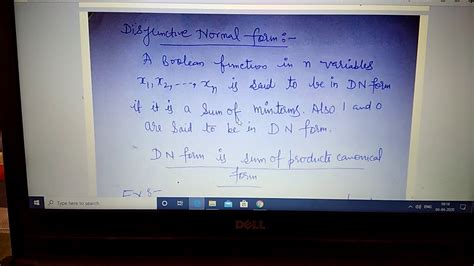 Disjunctive Normal form:-
A Boolean function in n variables
x₁, x₂, ---, xₙ is said to be in DN form
if it is a sum of minterms. Also 1 and 0
are said to be in DN form.
DN form is sum of products canonical
form
Type here to search
ENG
DELL